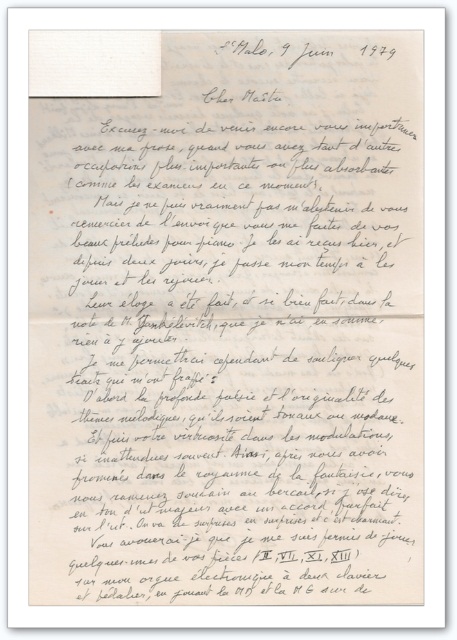 St Malo, 9 Juin 1979
Cher Maître
Excusez-moi de venir encore vous importuner
avec ma prose, quand vous avez tant d'autres
occupations plus importantes ou plus absorbantes
(comme les examens en ce moment).
Mais je ne puis vraiment pas m'abstenir de vous
remercier de l'envoi que vous me faites de vos
beaux préludes pour piano. Je les ai reçus hier, et
depuis deux jours, je passe mon temps à les
jouer et les rejouer.
Leur éloge a été fait, et si bien fait, dans la
note de M. Jankélévitch, que je n'ai en somme
rien à y ajouter.
Je me permettrai cependant de souligner quelques
traits qui m'ont frappé :
D'abord la profonde poésie et l'originalité des
thèmes mélodiques, qu'ils soient tonaux ou modaux.
Et puis votre virtuosité dans les modulations,
si inattendues souvent. Ainsi, après nous avoir
promenés dans le royaume de la fantaisie, vous
nous ramenez soudain au bercail, si j'ose dire,
en ton d'ut majeur avec un accord parfait
sur l'ut. On va de surprises en surprises et c'est charmant.
Vous avouerai-je que je me suis permis de jouer
quelques-unes de vos pièces (II, VII, XI, XIII)
sur mon orgue électronique à deux claviers
et pédalier, en jouant la MD et la MG sur de